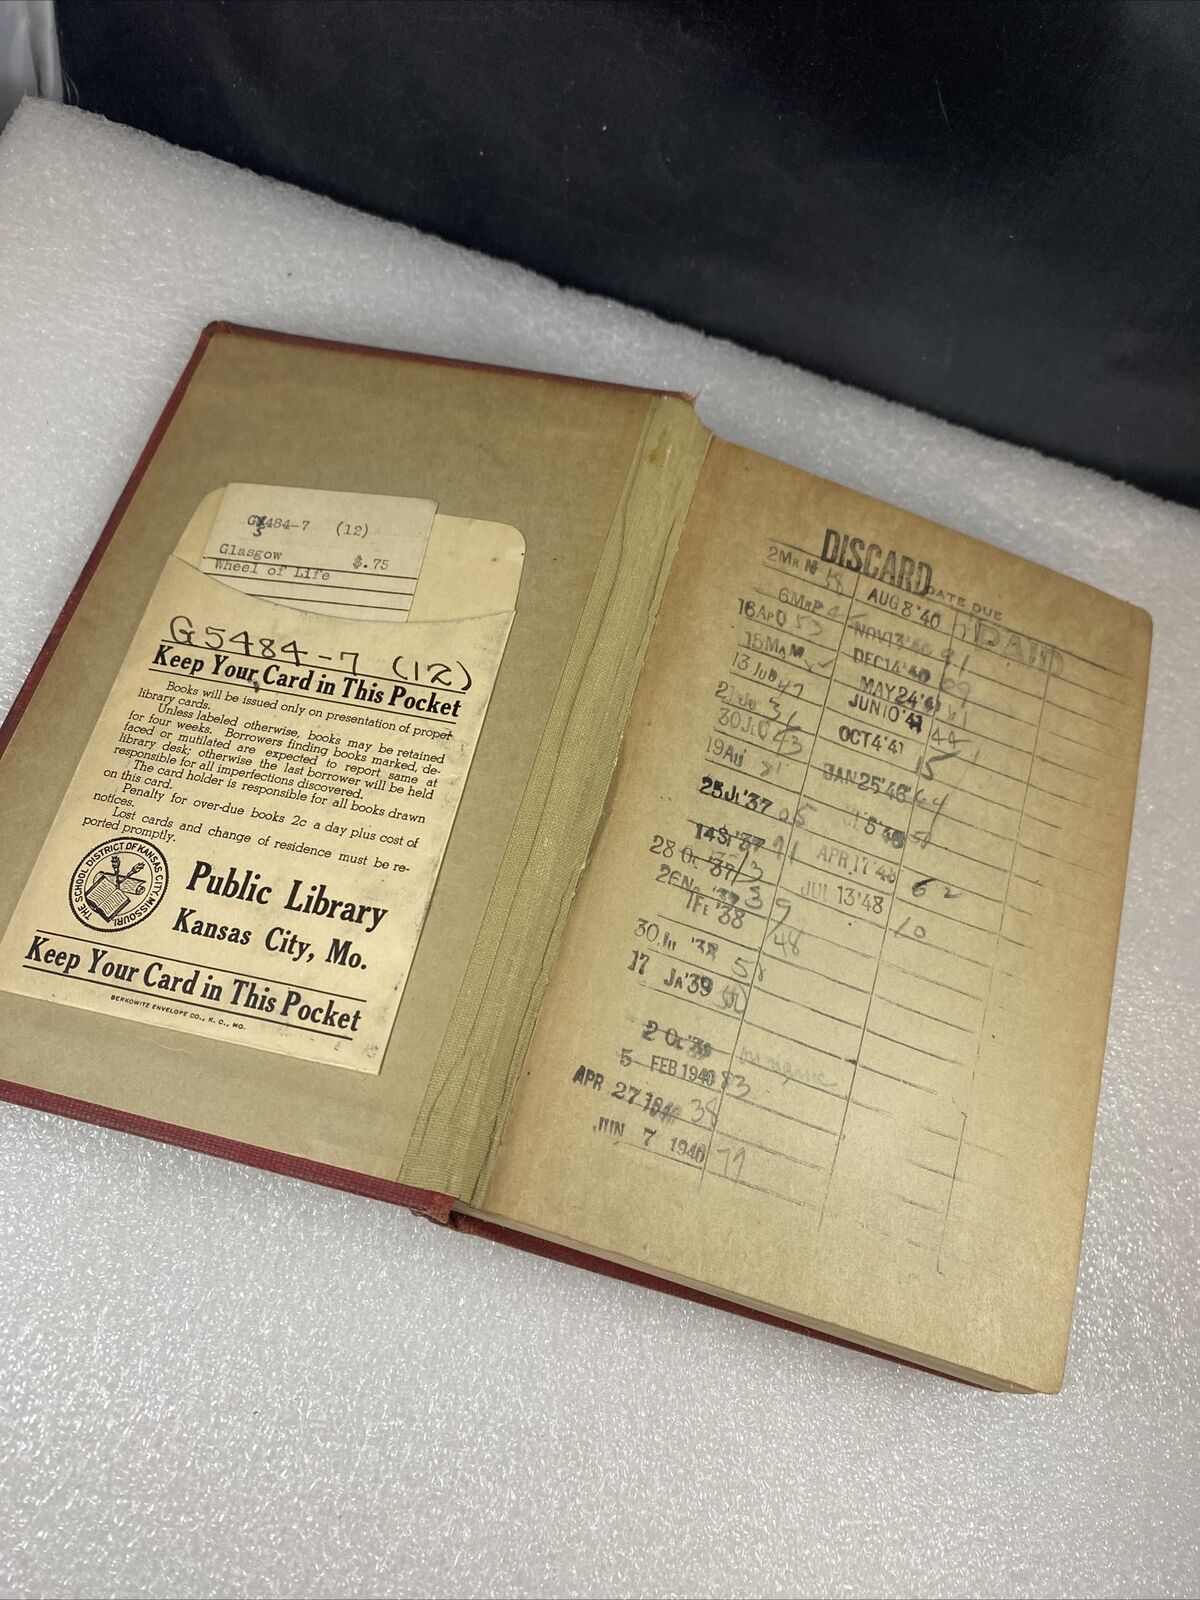 G5484-7 (12)
Glasgow $.75
Wheel of Life
G5484-7 (12)
Keep Your Card in This Pocket
Books will be issued only on presentation of proper
library cards.
Unless labeled otherwise, books may be retained
for four weeks. Borrowers finding books marked, de-
faced or mutilated are expected to report same at
library desk; otherwise the last borrower will be held
responsible for all imperfections discovered.
The card holder is responsible for all books drawn
on this card.
Penalty for over-due books 2c a day plus cost of
notices.
Lost cards and change of residence must be re-
ported promptly.
THE SCHOOL DISTRICT OF KANSAS CITY, MISSOURI
Public Library
Kansas City, Mo.
Keep Your Card in This Pocket
BERKOWITZ ENVELOPE CO., K. C., MO.
DISCARD
DATE DUE
PAID
2 MR
6 MR
16 AP
15 MR
13 JU 47
21 JU
30 43
19 AU
25 JL '37
14 '37
28 OC '37
26 NO
1 FE '38
30 '38
17 JA '39
2 OC '39
5 FEB 1940 83
APR 27 1940 38
JUN 7 1940
AUG 8 '40
NOV 13 '40
DEC 14 '40
MAY 24 '41
JUN 10 '41
OCT 4 '41 15
JAN 25 '46 64
5 '46
APR 17 '48 62
JUL 13 '48 10
48